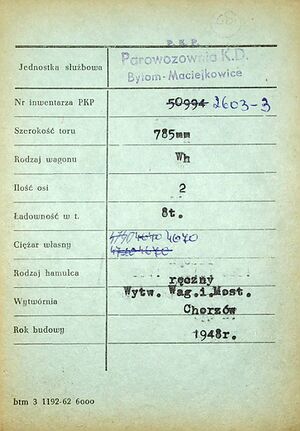 P.K.P.
Jednostka służbowa Parowozownia K.D.
Bytom-Maciejkowice
Nr inwentarza PKP 50994 2603-3
Szerokość toru 785mm
Rodzaj wagonu Wh
Ilość osi 2
Ładowność w t. 8t.
Ciężar własny 4670
Rodzaj hamulca ręczny
Wytwórnia Wytw. Wag.i.Most.
Chorzów
Rok budowy 1948r.
btm 3 1192-62 6000